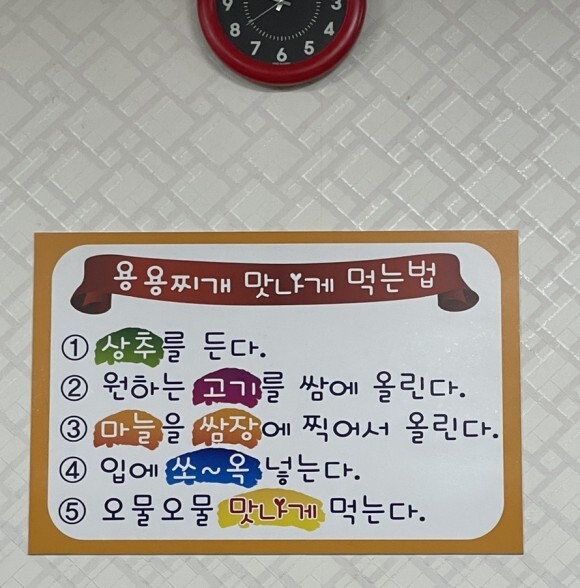 9 3
8 4
7 6 5
용용찌개 맛나게 먹는법
① 상추를 든다.
② 원하는 고기를 쌈에 올린다.
③ 마늘을 쌈장에 찍어서 올린다.
④ 입에 쏘~옥 넣는다.
⑤ 오물오물 맛나게 먹는다.